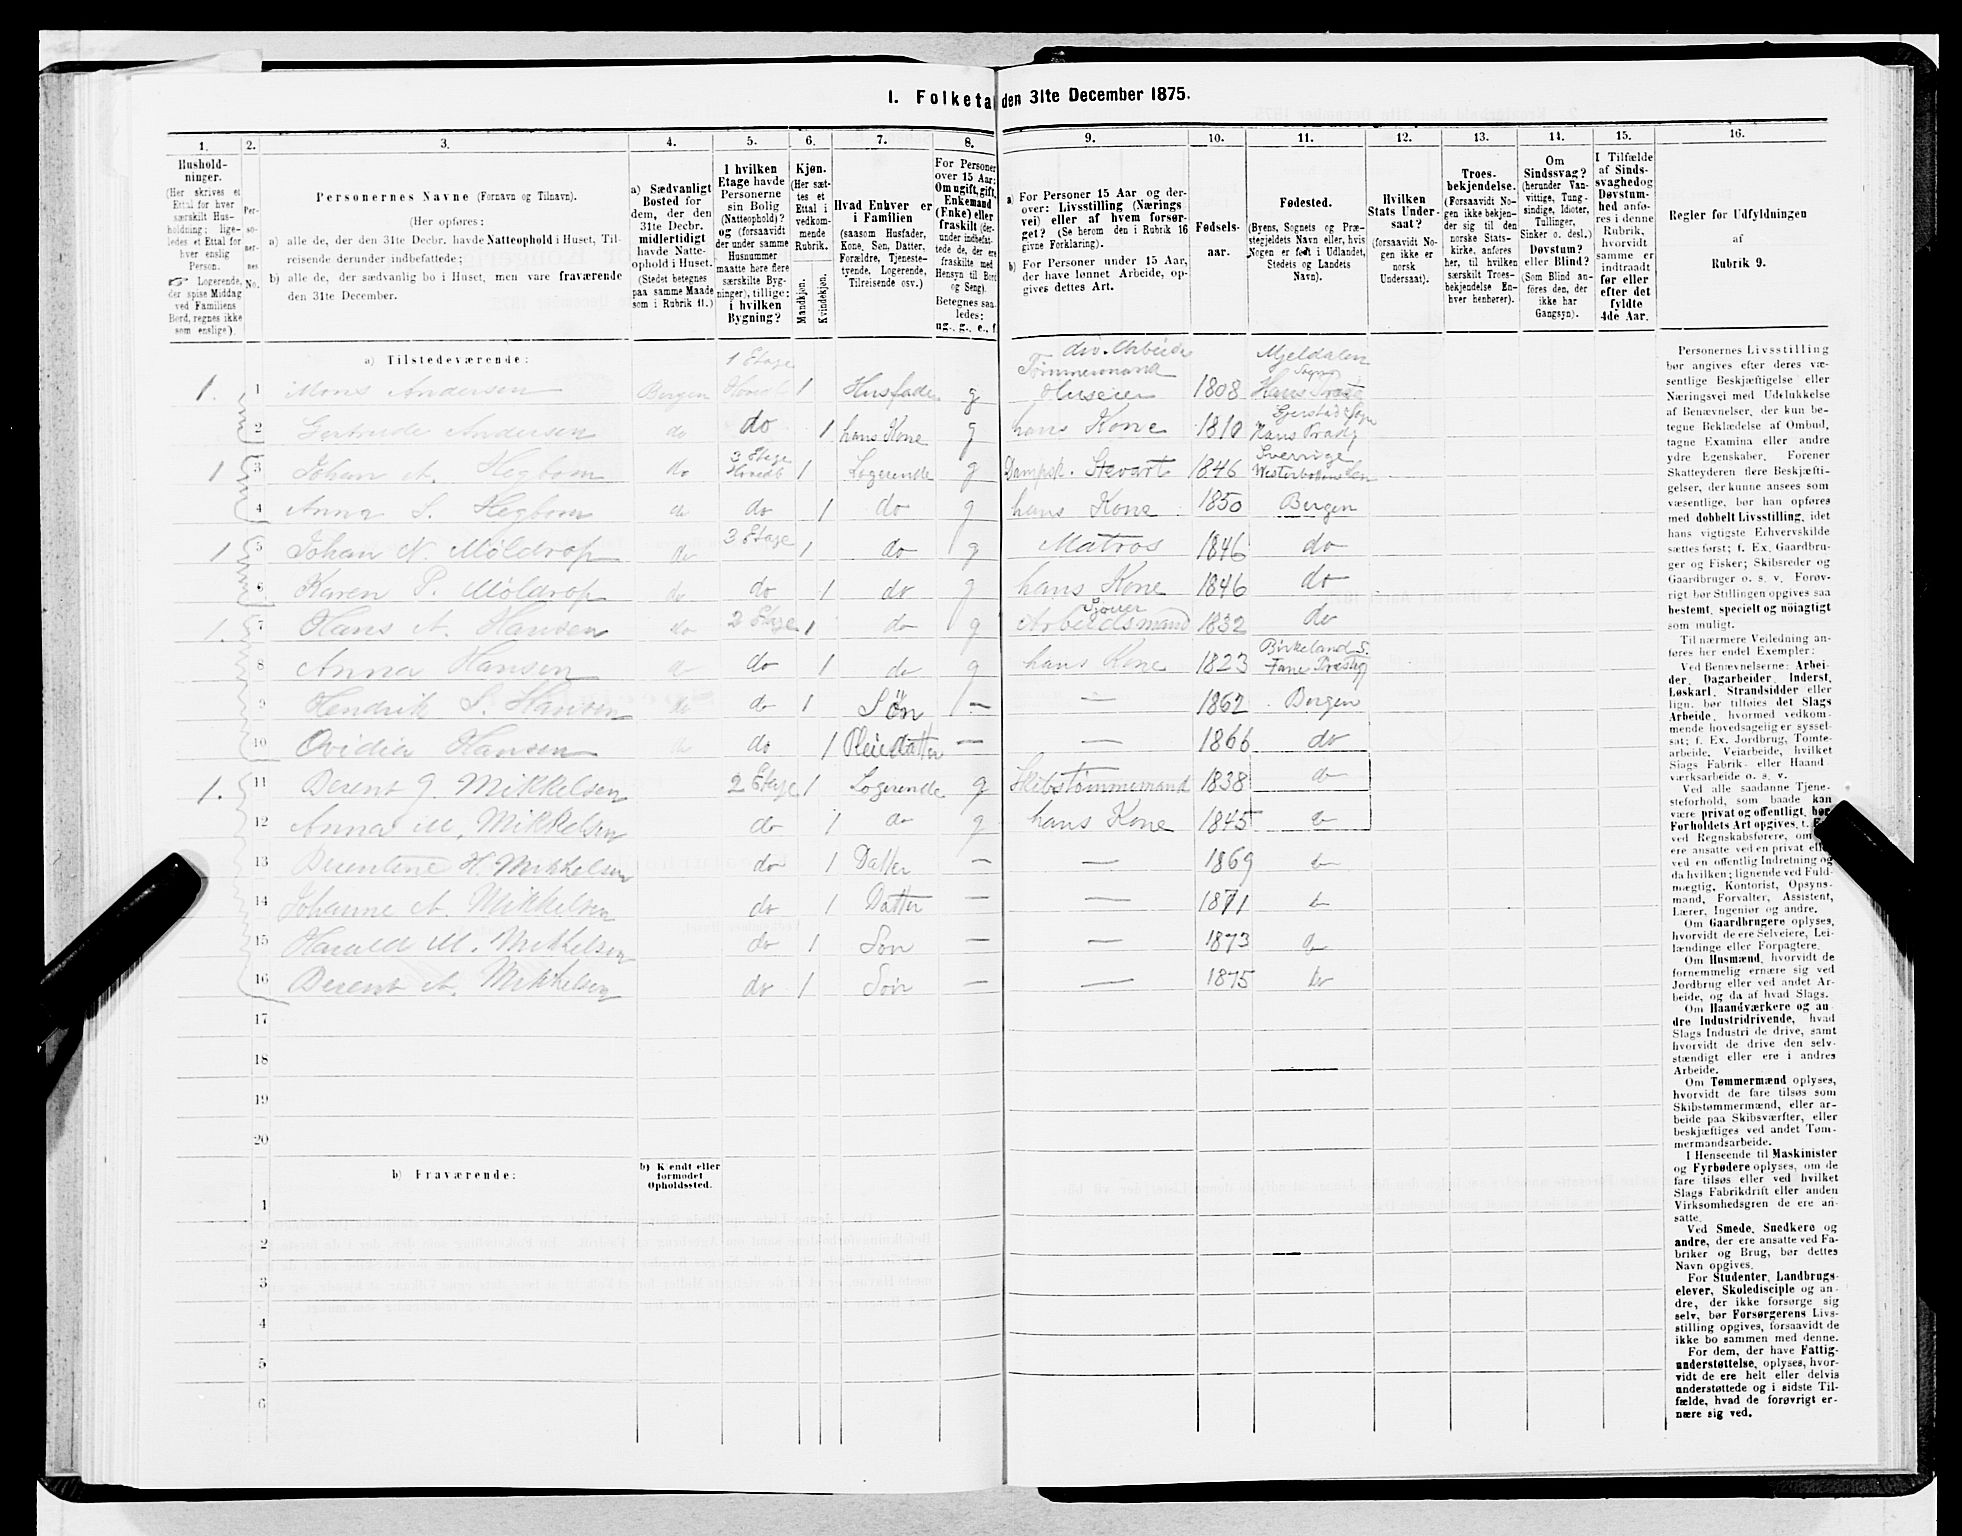 I. Folketa den 31te December 1875.
1. 2. 3. 4. 5. 6. 7. 8. 9. 10. 11. 12. 13. 14. 15. 16.
Hushold-
ninger.
(Her skrives et
Ettal for hver
særskilt Hus-
holdning; lige-
ledes et Ettal for
hver enslig
Person.
Logerende,
der spise Middag
ved Familiens
Bord, regnes ikke
som enslige).
Per-
so-
ner-
nes
No.
Personernes Navne (Fornavn og Tilnavn).
(Her opføres:
a) alle de, der den 31te Decbr. havde Natteophold i Huset, Til-
reisende derunder indbefattede;
b) alle de, der sædvanlig bo i Huset, men vare fraværende
den 31te December.
a) Sædvanligt
Bosted for
dem, der den
31te Decbr.
midlertidigt
havde Natte-
ophold i Huset.
(Stedet betegnes
paa samme Maade
som i Rubrik 11.)
I hvilken
Etage havde
Personerne
sin Bolig
(Natteophold)?
og (forsaavidt
der under samme
Husnummer
maatte høre flere
særskilte Byg-
ninger), tillige:
i hvilken
Bygning?
Kjøn.
(Her sæt-
tes et
Ettal i
vedkom-
mende
Rubrik.
Mandkjøn.
Kvindekjøn.
Hvad Enhver er
i Familien
(saasom Husfader,
Kone, Søn, Datter,
Forældre, Tjeneste-
tyende, Logerende,
Tilreisende osv.)
For Personer
over 15 Aar:
Om ugift, gift,
Enkemand
(Enke) eller
fraskilt (der-
under indbefat-
tede de, der ere
fraskilte med
Hensyn til Bord
og Seng).
Betegnes saa-
ledes:
ug., g., e., f.
a) For Personer 15 Aar og der-
over: Livsstilling (Nærings
vei) eller af hvem forsør-
get? (Se herom den i Rubrik 16
givne Forklaring).
b) For Personer under 15 Aar,
der have lønnet Arbeide, op-
gives dettes Art.
Fødsels-
aar.
Fødested.
(Byens, Sognets og Præ-
stegjeldets Navn eller, hvis
Nogen er født i Udlandet,
Stedets og Landets
Navn).
Hvilken
Stats Under-
saat?
(forsaavidt No-
gen ikke er
norsk
Undersaat).
Troes-
bekjendelse.
(Forsaavidt No-
gen ikke bekjen-
der sig til den
norske Stats-
kirke, anføres
her, til hvilken
særskilt Troes-
bekjendelse En-
hver henhører).
Om
Sindssvag?
(herunder Van-
vittige, Tung-
sindige, Idioter,
Tullinger,
Sinker o. desl.)
Døvstum?
eller Blind?
(Som Blind an-
føres den, der
ikke har
Gangsyn).
I Tilfælde
af Sinds-
svaghed og
Døvstum-
hed anfø-
res i denne
Rubrik,
hvorvidt
samme er
indtraadt
før eller
efter det
fyldte
4de Aar.
Regler for Udfyldningen
af
Rubrik 9.
a) Tilstedeværende:
1. 1 Mons Andersen Bergen 1 Etage Hovedb 1 Husfader g div. Arbeide Tømmermand Huseier 1808 Mjeldalen Sogn Haus Præst
2 Gertrude Andersen do do 1 hans Kone g hans Kone 1810 Gjerstad Sogn Haus Præstg
1 3 Johan A. Hegbom do 3 Etage Hovedb 1 Logerende g Dampsk. Stevart 1846 Sverrige Westerbottens Len
4 Anna S. Hegbom do do 1 do g hans Kone 1850 Bergen
1 5 Johan N. Møldrop do 3 Etage 1 do g Matros 1846 do
6 Karen P. Møldrop do do 1 do g hans Kone 1846 do
1. 7 Hans A. Hansen do 2 Etage 1 do g Arbeidsmand 1832 do
8 Anna Hansen do do 1 do g hans Kone 1823 Birkeland S. Fane Præstg
9 Hendrik S. Hansen do do 1 Søn — — 1862 Bergen
10 Ovidia Hansen do do 1 Pleiedatter — — 1866 do
1. 11 Berent J. Mikkelsen 2 Etage 1 Logerende g Skibstømmermand 1838 do
12 Anna M. Mikkelsen do 1 do g hans Kone 1845 do
13 Berentine H. Mikkelsen do 1 Datter — — 1869 do
14 Johanne A. Mikkelsen do 1 Datter — — 1871 do
15 Harald M. Mikkelsen do 1 Søn — — 1873 do
16 Berent A. Mikkelsen do 1 Søn — — 1875 do
17
18
19
20
b) Fraværende:
b) Kjendt eller
formodet
Opholdssted.
1
2
3
4
5
6
Personernes Livsstilling
bør angives efter deres væ-
sentlige Beskjæftigelse eller
Næringsvei med Udelukkelse
af Benævnelser, der kun be-
tegne Beklædelse af Ombud,
tagne Examina eller andre
ydre Egenskaber. Forener
Skatteyderen flere Beskjæfti-
gelser, der kunne ansees som
væsentlige, bør han opføres
med dobbelt Livsstilling, idet
hans vigtigste Erhvervskilde
sættes først; f. Ex. Gaardbru-
ger og Fisker; Skibsreder og
Gaardbruger o. s. v. Forøv-
rigt bør Stillingen opgives saa
bestemt, specielt og nøiagtigt
som muligt.
Til nærmere Veiledning an-
føres her endel Exempler:
Ved Benævnelserne: Arbei-
der, Dagarbeider, Inderst,
Løskarl, Strandsidder eller
lign. bør tilføies det Slags
Arbeide, hvormed vedkom-
mende hovedsagelig er syssel-
sat; f. Ex. Jordbrug, Tomte-
arbeide, Veiarbeide, hvilket
Slags Fabrik- eller Haand
værksarbeide o. s. v.
Ved alle saadanne Tjene-
steforhold, som baade kan
være privat og offentligt, bør
Forholdets Art opgives, t.
ved Regnskabsførere, om
ere ansatte ved en privat elle
ved en offentlig Indretning og
da hvilken; lignende ved Fuld-
mægtig, Kontorist, Opsyns-
mand, Forvalter, Assistent,
Lærer, Ingeniør og andre.
Om Gaardbrugere oplyses,
hvorvidt de ere Selveiere, Lei-
lændinge eller Forpagtere.
Om Husmænd, hvorvidt de
fornemmelig ernære sig ved
Jordbrug eller ved andet Ar-
beide, og da af hvad Slags.
Om Haandværkere og an-
dre Industridrivende, hvad
Slags Industri de drive, samt
hvorvidt de drive den selv-
stændigt eller ere i andres
Arbeide.
Om Tømmermænd oplyses,
hvorvidt de fare tilsøs som
Skibstømmermænd, eller ar-
beide paa Skibsværfter, eller
beskjæftiges ved andet Tøm-
mermandsarbeide.
I Henseende til Maskinister
og Fyrbødere oplyses, om de
fare tilsøs eller ved hvilket
Slags Fabrikdrift eller anden
Virksomhedsgren de ere an-
satte.
Ved Smede, Snedkere og
andre, der ere ansatte ved Fa-
briker og Brug, bør dettes
Navn opgives.
For Studenter, Landbrugs-
elever, Skoledisciple og an-
dre, der ikke forsørge sig
selv, bør Forsørgerens Livs-
stilling opgives, forsaavidt de
ikke bo sammen med denne.
For dem, der have Fattig-
understøttelse, oplyses, hvor-
vidt de ere helt eller delvis
understøttede og i sidste Til-
fælde, hvad de forøvrigt er-
nære sig ved.